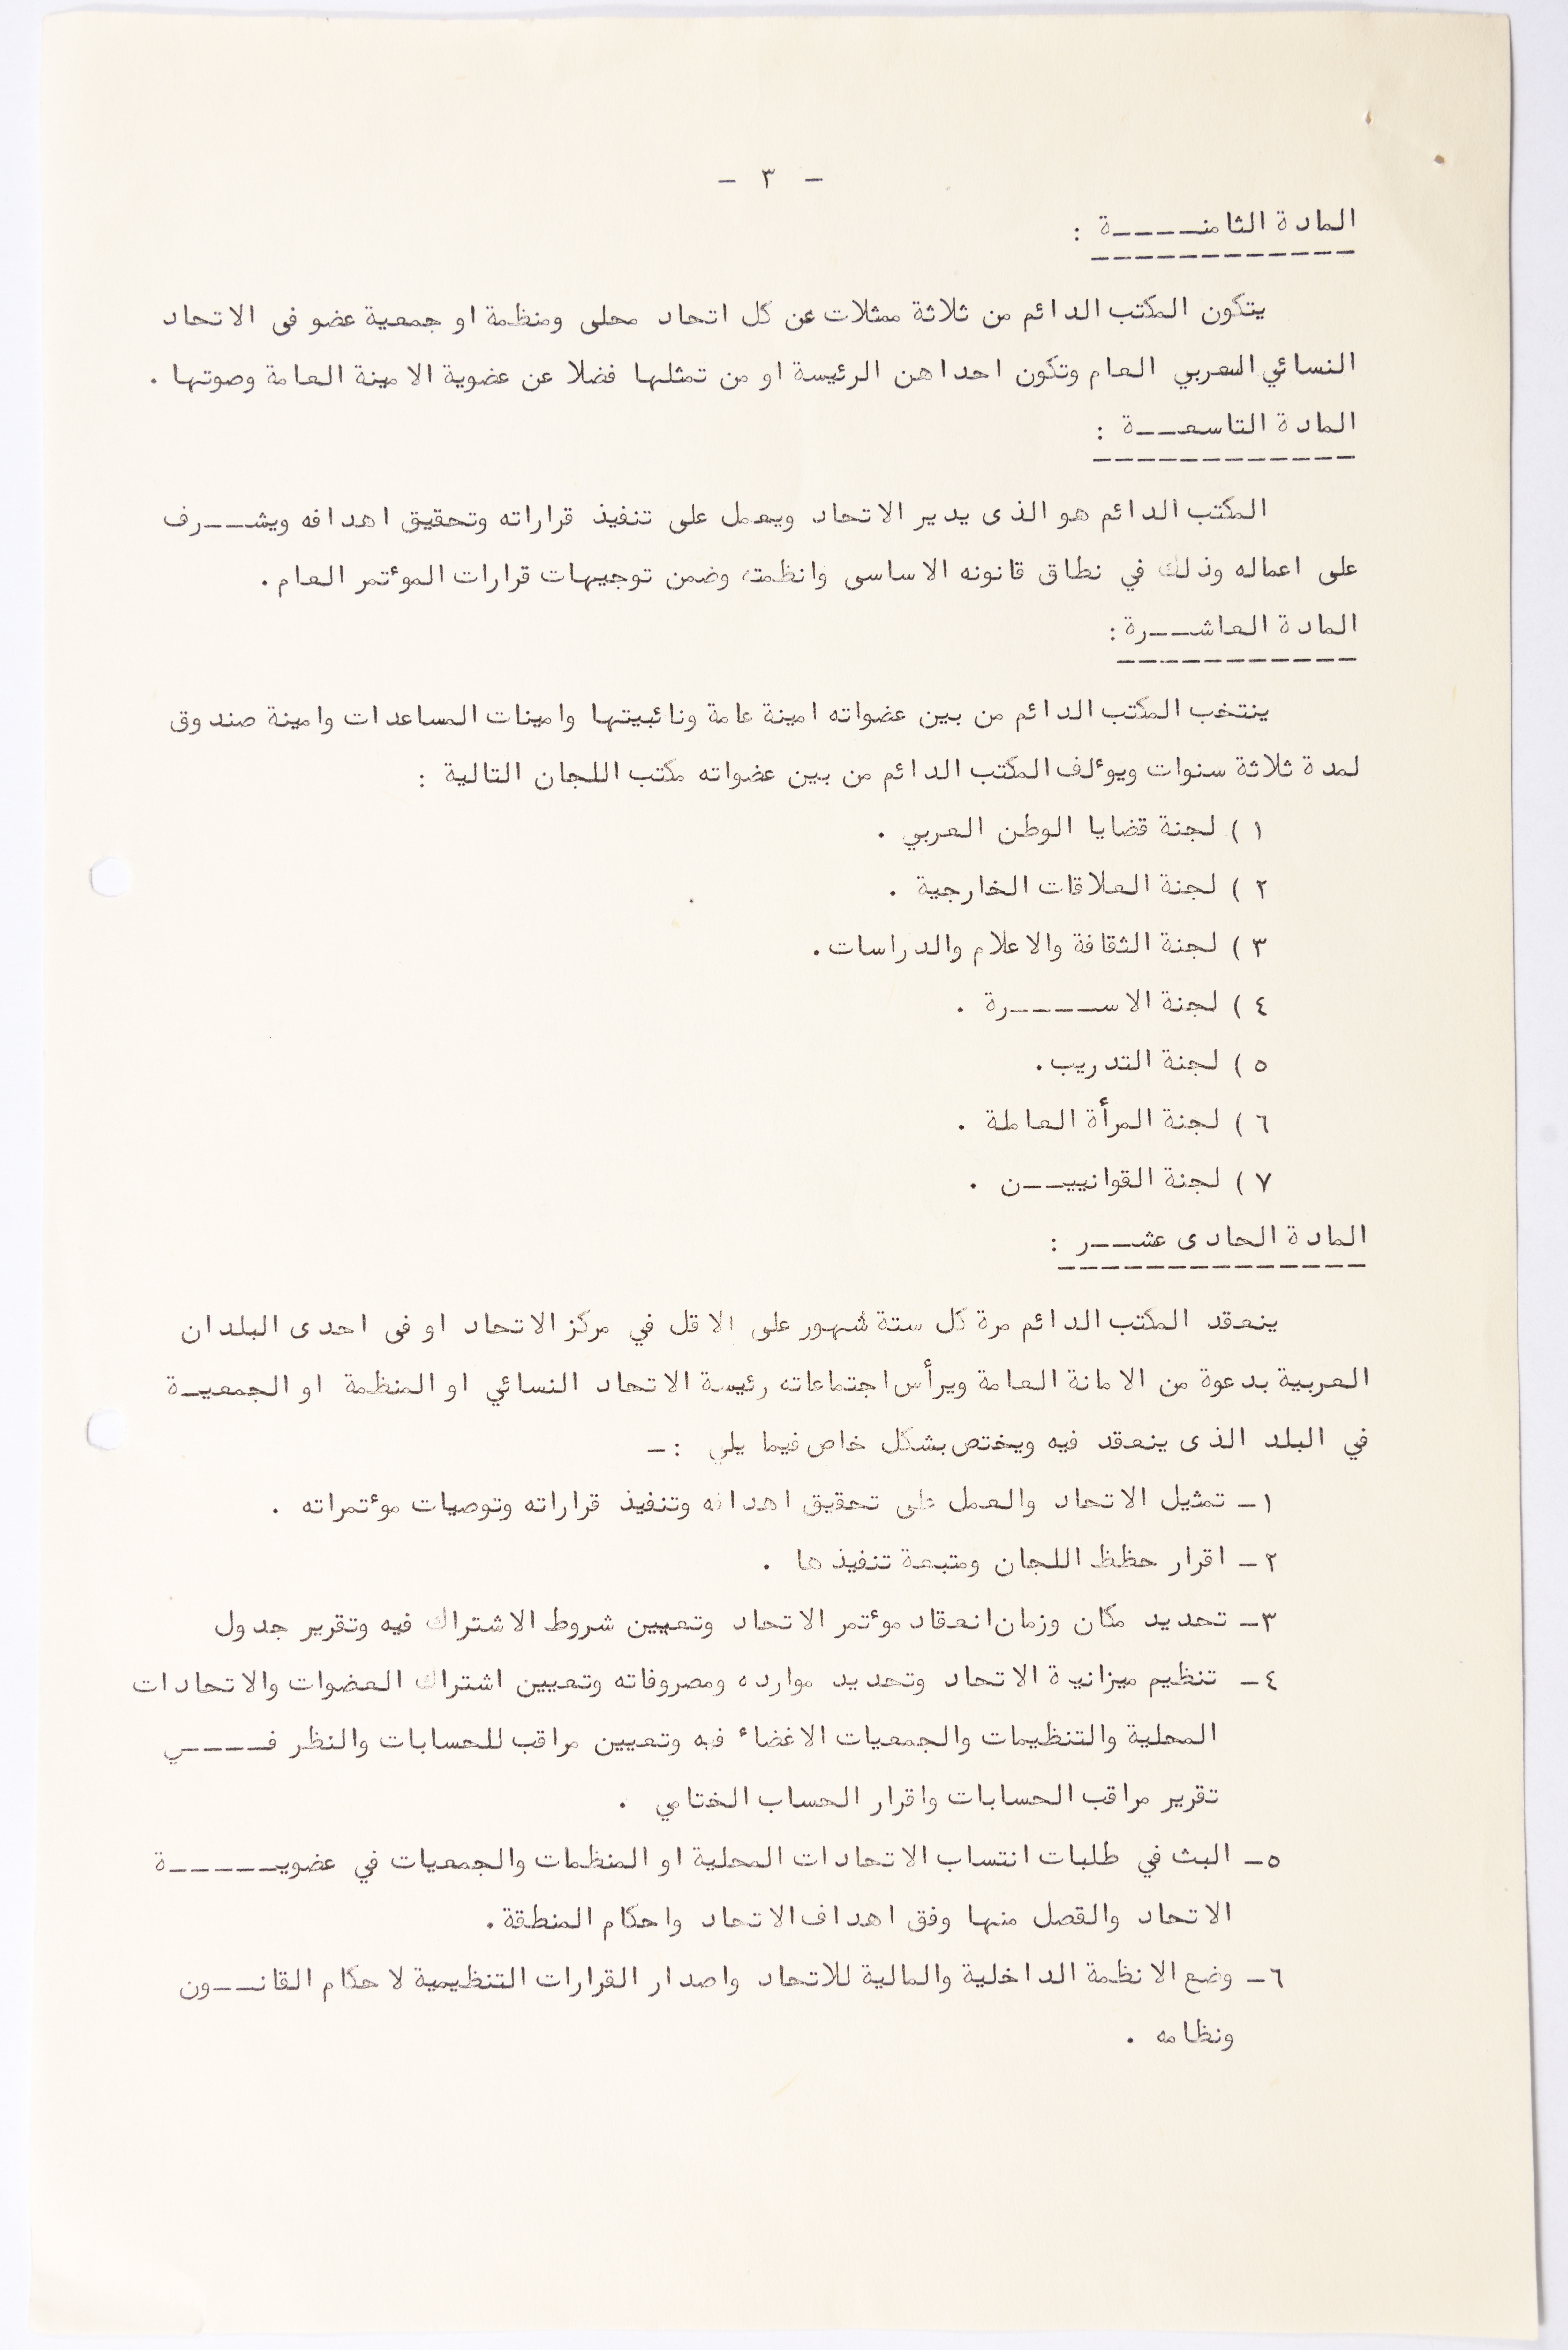 - ٣ -
المادة الثامنـــــة :
يتكون المكتب الدائم من ثلاثة ممثلات عن كل اتحاد محلى ومنظمة او جمعية عضو فى الاتحاد
النسائي العربي العام وتكون احداهن الرئيسة او من تمثلها فضلا عن عضوية الامينة العامة وصوتها .
المادة التاسعـــة :
المكتب الدائم هو الذى يدير الاتحاد ويعمل على تنفيذ قراراته وتحقيق اهدافه ويشـــرف
على اعماله وذلك في نطاق قانونه الاساسى وانظمته وضمن توجيهات قرارات الموٴتمر العام .
المادة العاشـــرة :
ينتخب المكتب الدائم من بين عضواته امينة عامة ونائبيتها وامينات المساعدات وامينة صندوق
لمدة ثلاثة سنوات ويوٴلف المكتب الدائم من بين عضواته مكتب اللجان التالية :
١ ) لجنة قضايا الوطن العربي .
٢ ) لجنة العلاقات الخارجية .
٣ ) لجنة الثقافة والاعلام والدراسات .
٤ ) لجنة الاســـــرة .
٥ ) لجنة التدريب .
٦ ) لجنة المرأة العاملة .
٧ ) لجنة القوانييـــن .
المادة الحادى عشـــر :
ينعقد المكتب الدائم مرة كل ستة شهور على الاقل في مركز الاتحاد او فى احدى البلدان
العربية بدعوة من الامانة العامة ويرأس اجتماعاته رئيسة الاتحاد النسائي او المنظمة او الجمعيـة
في البلد الذى ينعقد فيه ويختص بشكل خاص فيما يلي :-
١- تمثيل الاتحاد والعمل على تحقيق اهدافه وتنفيذ قراراته وتوصيات موٴتمراته .
٢- اقرار حظظ اللجان ومتبعة تنفيذها .
٣- تحديد مكان وزمان انعقاد موٴتمر الاتحاد وتعيين شروط الاشتراك فيه وتقرير جدول
٤- تنظيم ميزانية الاتحاد وتحديد موارده ومصروفاته وتعيين اشتراك العضوات والاتحادات
المحلية والتنظيمات والجمعيات الاغضاء فيه وتعيين مراقب للحسابات والنظر فـــــي
تقرير مراقب الحسابات واقرار الحساب الختامي .
٥- البث في طلبات انتساب الاتحادات المحلية او المنظمات والجمعيات في عضويــــــة
الاتحاد والقصل منها وفق اهداف الاتحاد واحكام المنطقة .
٦- وضع الانظمة الداخلية والمالية للاتحاد واصدار القرارات التنظيمية لاحكام القانـــون
ونظامه .